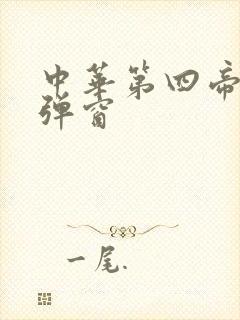 中華第四帝
弹窗
一尾.